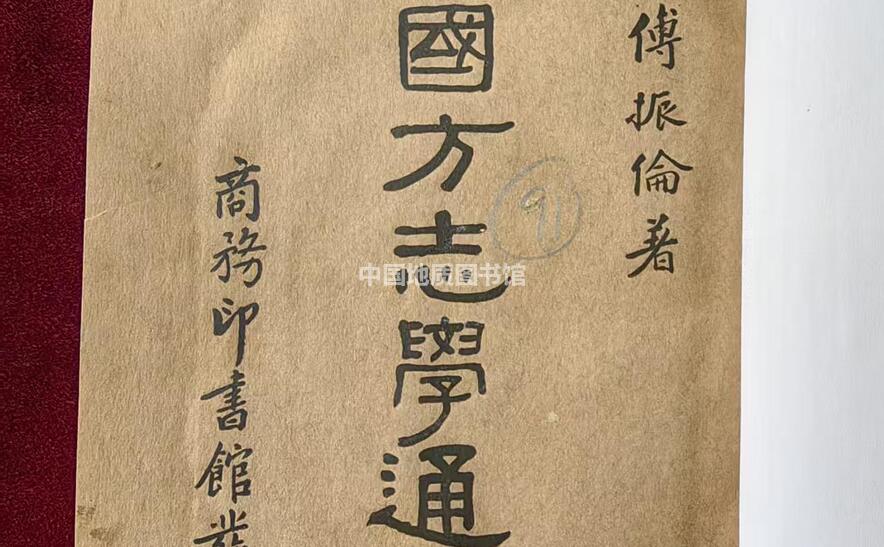 傅振倫著
國方志學通
商務印書館發
91
中国地质图书馆